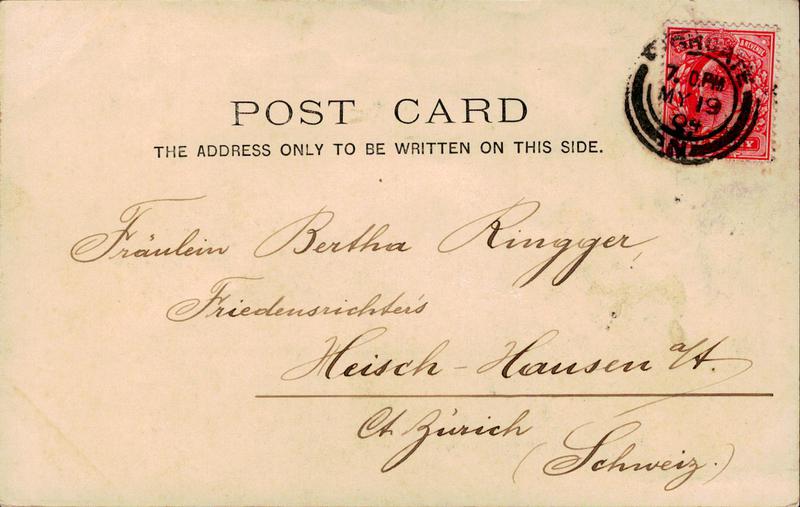 & REVENUE
HIGHGATE
7-0PM
MY 19
04
N
POST CARD
THE ADDRESS ONLY TO BE WRITTEN ON THIS SIDE.
Fräulein Bertha Ringger,
Friedensrichter's
Heisch - Hausen a/A.
Ct. Zürich
(Schweiz.)